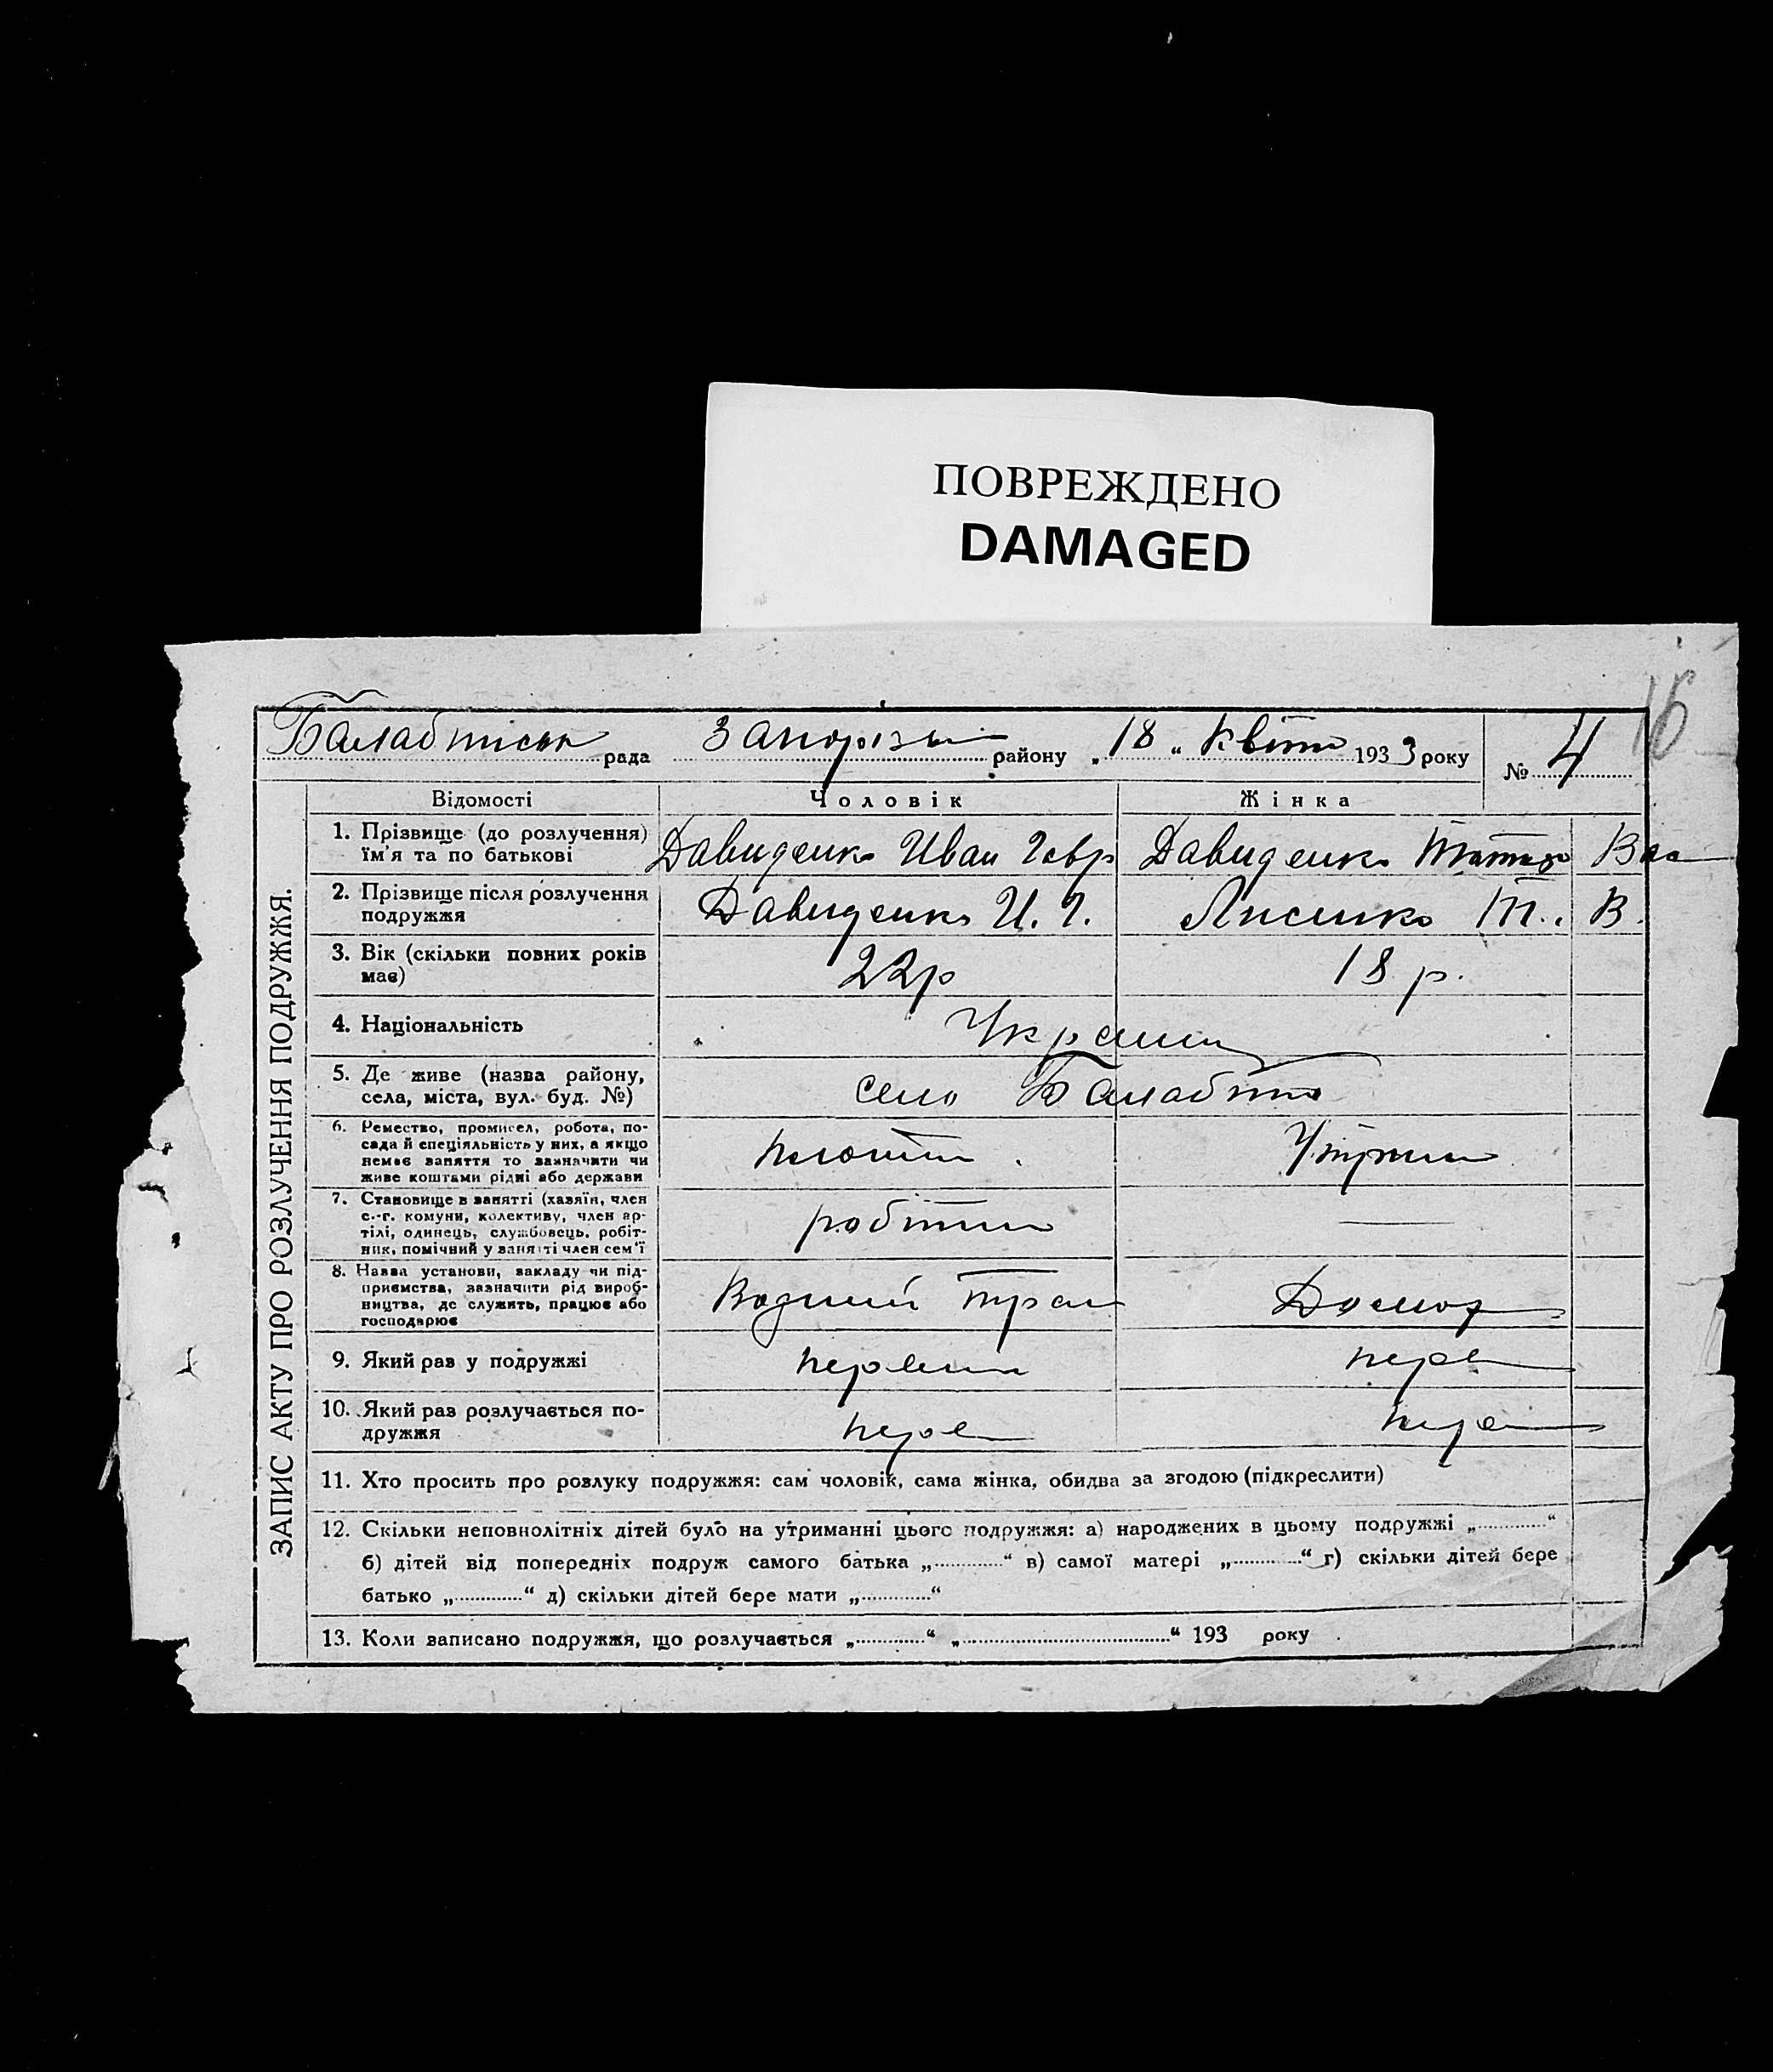 ПОВРЕЖДЕНО
DAMAGED
16
Балабтіськ рада Запорізьк району „18“ квітн 1933 року № 4
ЗАПИС АКТУ ПРО РОЗЛУЧЕННЯ ПОДРУЖЖЯ.
Відомості Чоловік Жінка
1. Прізвище (до розлучення) Давиденко Иван Гавр Давиденко Татья Вас
ім'я та по батькові
2. Прізвище після розлучення Давиденко И. Г. Лисенко Т. В.
подружжя
3. Вік (скільки повних років 22р 18 р.
має)
4. Національність Украинц
5. Де живе (назва району, село Балабино
села, міста, вул. буд. №)
6. Ремество, промисел, робота, по-
сада й спеціяльність у них, а якщо
немає заняття то зазначити чи
живе коштами рідні або держави
7. Становище в занятті (хазяїн, член
с.-г. комуни, колективу, член ар-
тілі, одинець, службовець, робіт-
ник, помічний у занятті член сем'ї
робтник —
8. Назва установи, закладу чи під-
приємства, зазначити рід вироб-
ництва, де служить, працює або
господарює
Водний тран Домогос
9. Який раз у подружжі первий перв
10. Який раз розлучається по- перв перв
дружжя
11. Хто просить про розлуку подружжя: сам чоловік, сама жінка, обидва за згодою (підкреслити)
12. Скільки неповнолітніх дітей було на утриманні цього подружжя: а) народжених в цьому подружжі „.............“
б) дітей від попередніх подруж самого батька „.............“ в) самої матері „.............“ г) скільки дітей бере
батько „.............“ д) скільки дітей бере мати „.............“
13. Коли записано подружжя, що розлучається „.............“ „.......................................“ 193 року